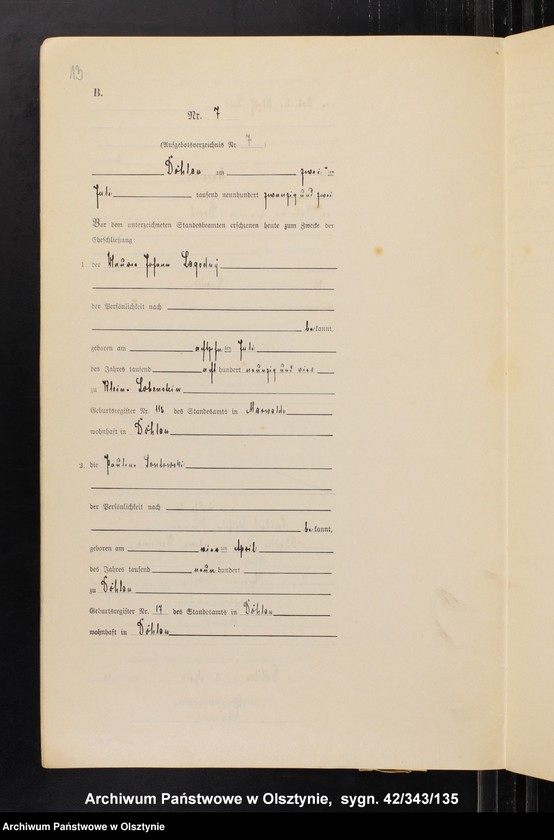 13
B.
Nr. 7
(Aufgebotsverzeichnis Nr. 7 )
Döhlau am zwei ten
Juli tausend neunhundert zwanzig und zwei
Vor dem unterzeichneten Standesbeamten erschienen heute zum Zwecke der
Eheschließung:
1. der Maurer Johann
der Persönlichkeit nach
bekannt,
geboren am ten Juli
des Jahres tausend acht hundert neunzig und vier
zu Klein Lobenstein
Geburtsregister Nr. des Standesamts in Marwalde
wohnhaft in Döhlau
2. die Pauline
der Persönlichkeit nach
bekannt,
geboren am ten April
des Jahres tausend neun hundert
zu Döhlau
Geburtsregister Nr. 17 des Standesamts in Döhlau
wohnhaft in Döhlau
Archiwum Państwowe w Olsztynie, sygn. 42/343/135
Archiwum Państwowe w Olsztynie